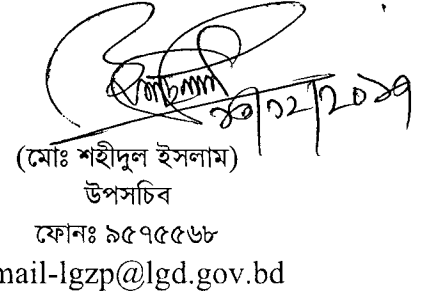 (মোঃ শহীদুল ইসলাম)
উপসচিব
ফোনঃ ৯৫৭৫৫৬৮
mail-lgzp@lgd.gov.bd